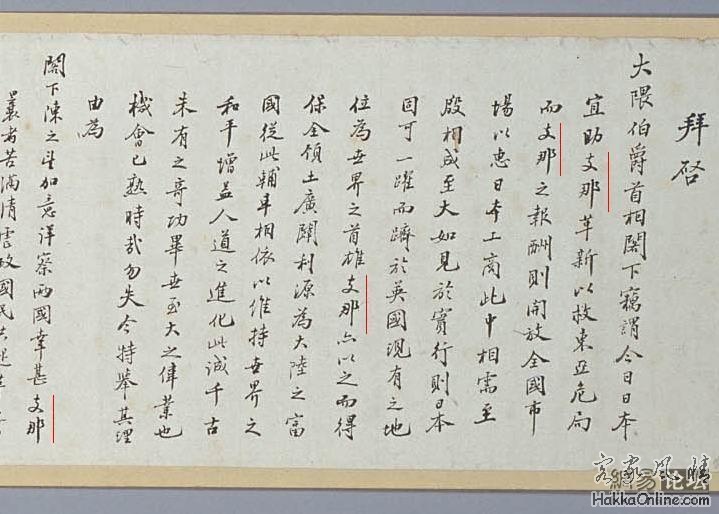 拜啓
大隈伯爵首相閣下竊謂今日日本
宜助支那革新以救東亞危局
而支那之報酬則開放全國市
場以惠日本工商此中相需至
殷相成至大如見於實行則日本
固可一躍而躋於英國現有之地
位為世界之首雄支那亦以之而得
保全領土廣闢利源為大陸之富
國從此輔車相依以維持世界之
和平增益人道之進化此誠千古
未有之奇功畢世至大之偉業也
機會已熟時哉勿失今特舉其理
由為
閣下陳之望加意詳察兩國幸甚支那
曩者苦滿清虐政國民共起革
客家風情
HakkaOnline.com
論坛